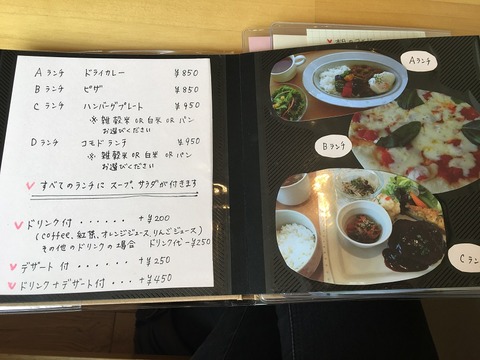 Aランチ ドライカレー ¥850
Bランチ ピザ ¥850
Cランチ ハンバーグプレート ¥950
※ 雑穀米 OR 白米 OR パン
お選びください
Dランチ コモドランチ ¥950
※ 雑穀米 OR 白米 OR パン
お選びください
すべてのランチに スープ、サラダが付きます
ドリンク付 ・・・・・・ +¥200
(coffee、紅茶、オレンジジュース、りんごジュース)
その他のドリンクの場合
デザート付 ・・・・・・ +¥250
ドリンク+デザート付 ・・・・ +¥450
Aランチ
Bランチ
Cラン